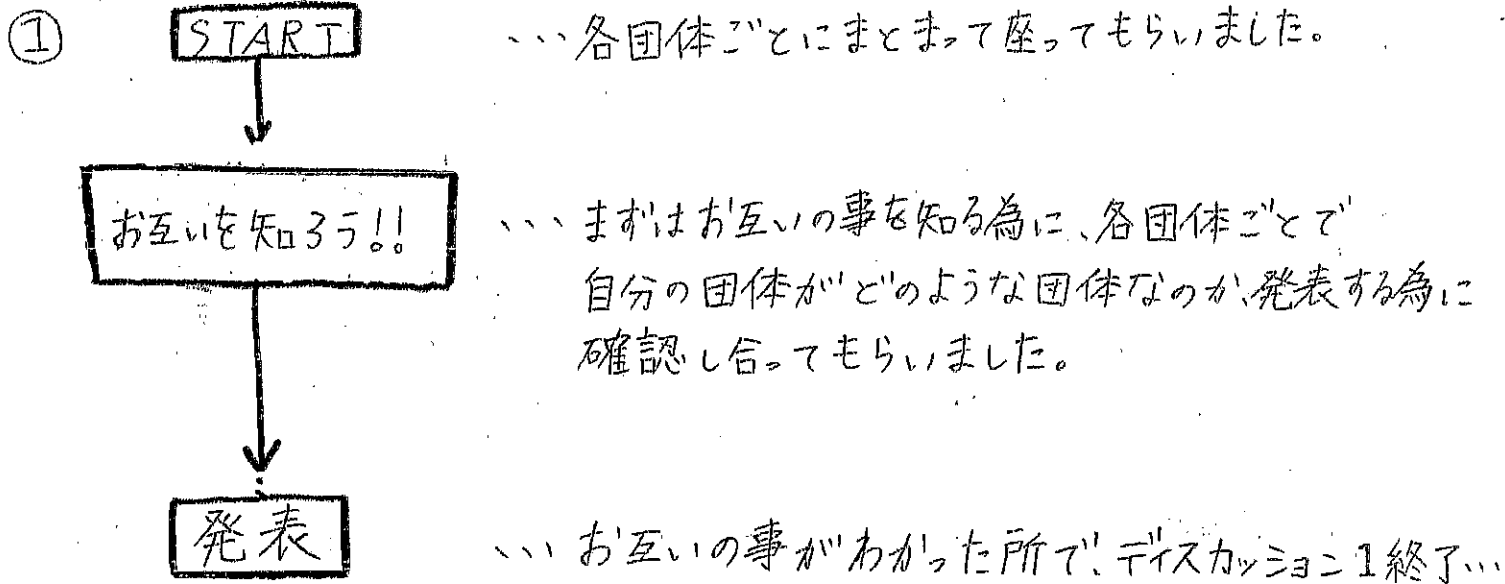 ① START …各団体ごとにまとまって座ってもらいました。
お互いを知ろう!! …まずはお互いの事を知る為に、各団体ごとで
自分の団体がどのような団体なのか、発表する為に
確認し合ってもらいました。
発表 …お互いの事がわかった所で、ディスカッション1終了…